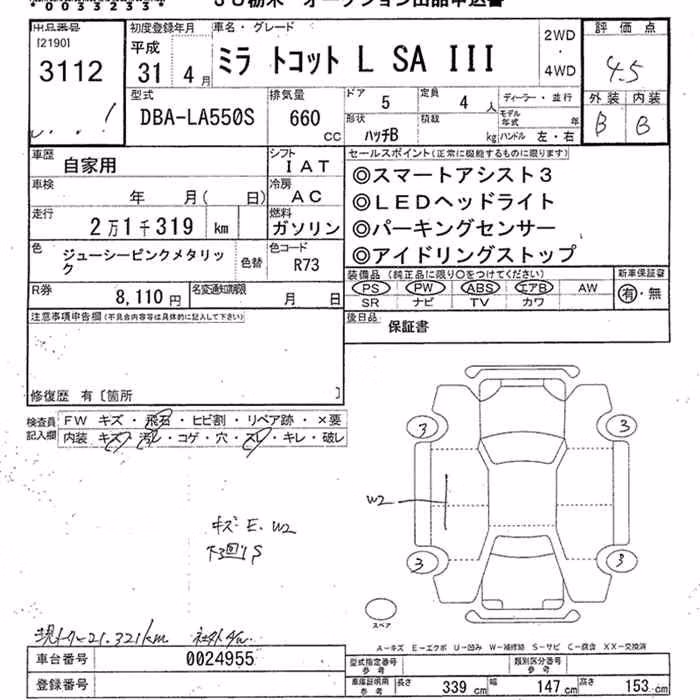 40032334 JU栃木 オークション出品申込書
出品番号 初度登録年月 車名・グレード 2WD 評価点
[2190] 平成 ・
3112 31 4月 ミラ トコット L SA III 4WD 4.5
型式 排気量 ドア 5 定員 4人 ディーラー・並行 外装 内装
DBA-LA550S 660 cc 形状 ハッチB 積載 kg モデル年式 年 B B
ハンドル 左・右
車歴 自家用 シフト IAT セールスポイント(正常に機能するものに限ります)
車検 年 月( 日) 冷房 AC ◎スマートアシスト3
走行 2万1千319 km 燃料 ガソリン ◎LEDヘッドライト
◎パーキングセンサー
色 ジューシーピンクメタリック 色替 色コード R73 ◎アイドリングストップ
R券 8,110円 名変通知期限 月 日 装備品(純正品に限り〇をつけてください) 新車保証書
PS PW ABS エアB AW 有・無
SR ナビ TV カワ
注意事項申告欄(不具合内容等は具体的に記入して下さい) 後日品 保証書
修復歴 有〔箇所 〕
検査員記入欄 FW キズ・飛石・ヒビ割・リペア跡・×要
内装 キズ・汚レ・コゲ・穴・スレ・キレ・破レ
3 3
W2
キズ E. W2
下回りS
3 3
スペア
現メーター21,321km
A-キズ E-エクボ U-凹み W-補修跡 S-サビ C-腐食 XX-交換済
車台番号 0024955 型式指定番号 参考 類別区分番号 参考
登録番号 車庫証明用 参考 長さ 339cm 幅 147cm 高さ 153cm